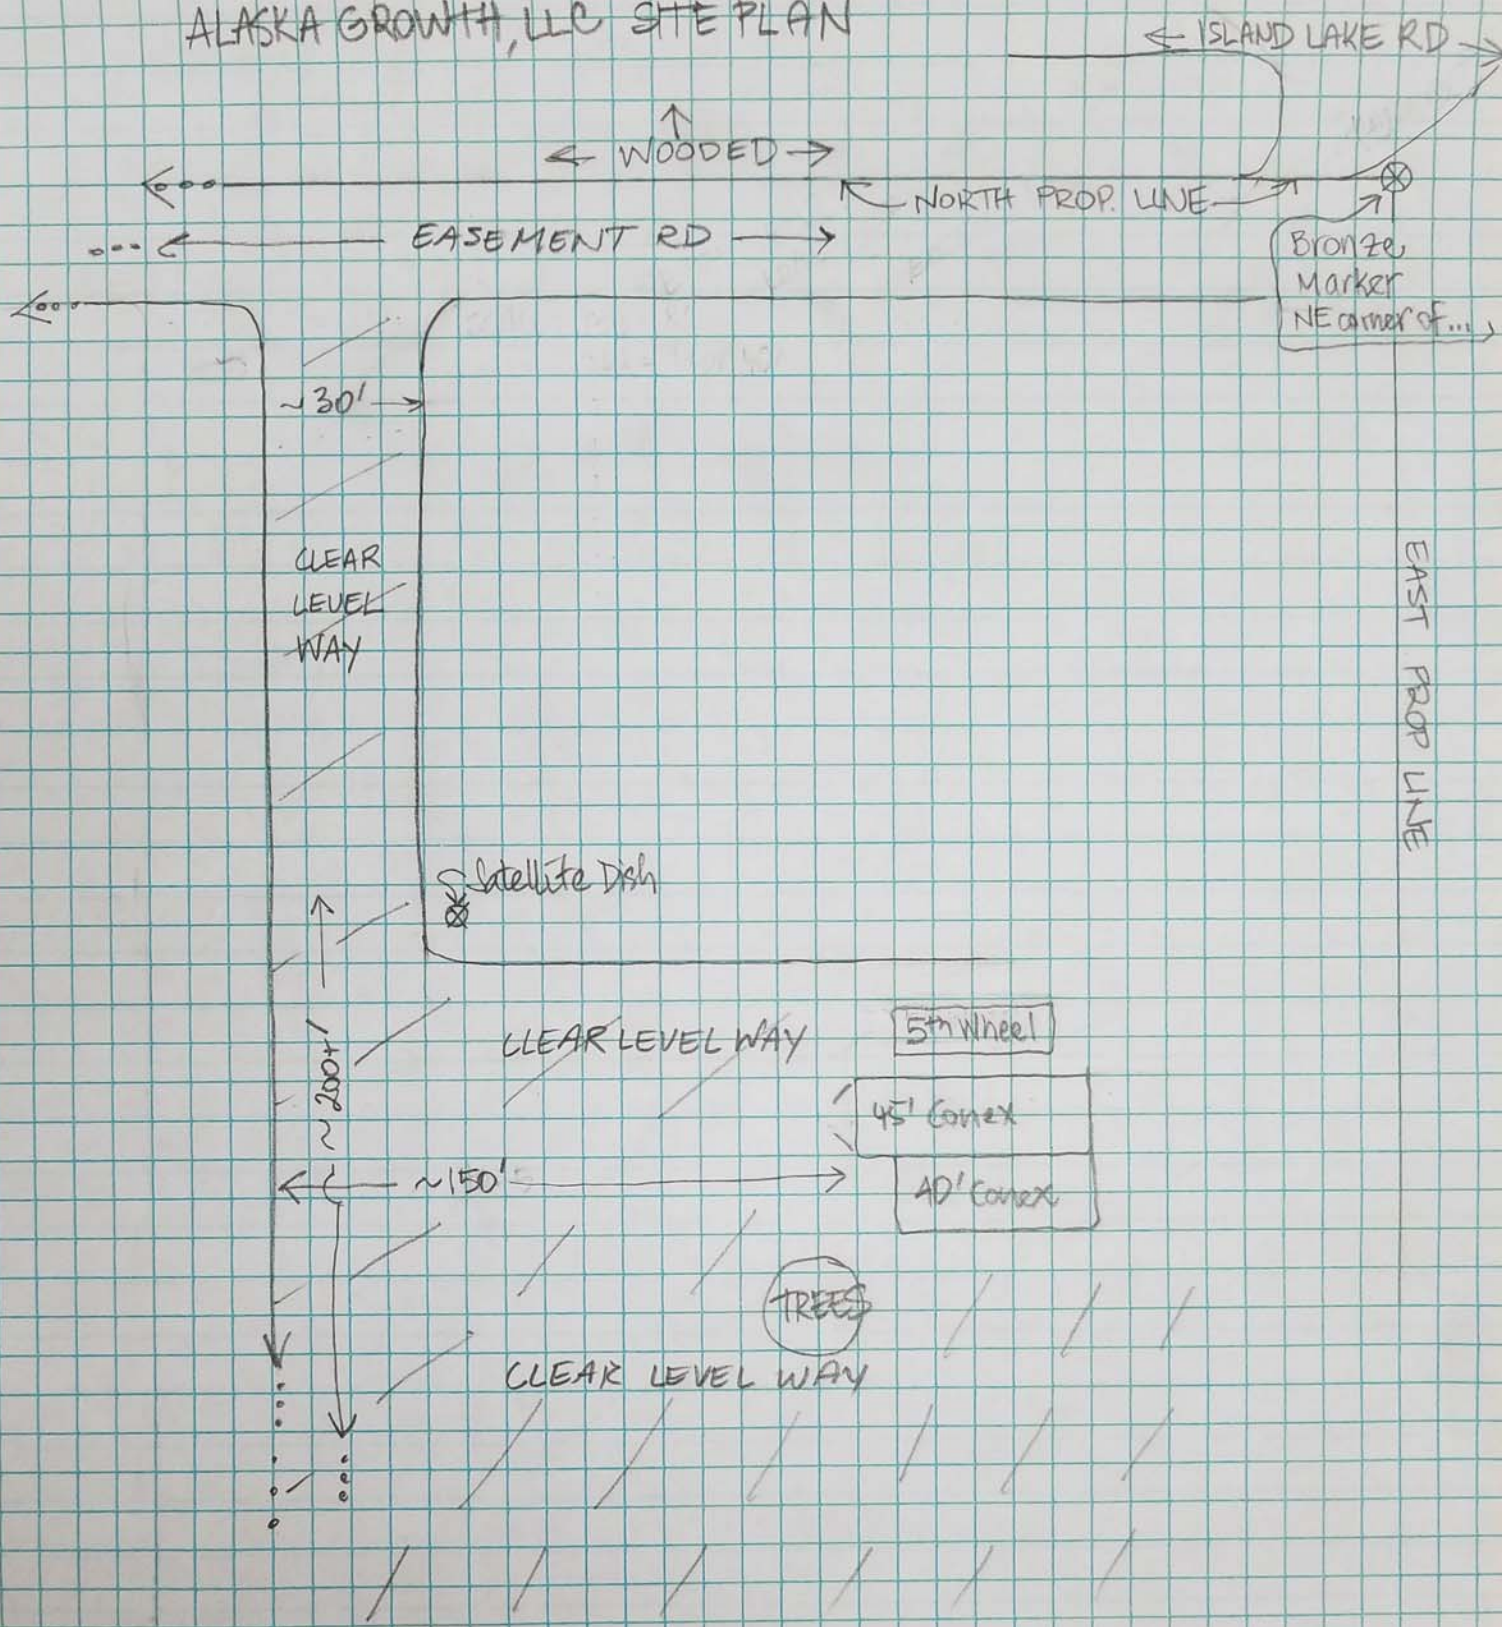 ALASKA GROWTH, LLC SITE PLAN
ISLAND LAKE RD
WOODED
NORTH PROP. LINE
EASEMENT RD
Bronze
Marker
NE corner of...
~30'
CLEAR
LEVEL
WAY
EAST PROP LINE
Satellite Dish
CLEAR LEVEL WAY
5th Wheel
~200+'
45' Conex
~150'
40' Conex
TREES
CLEAR LEVEL WAY